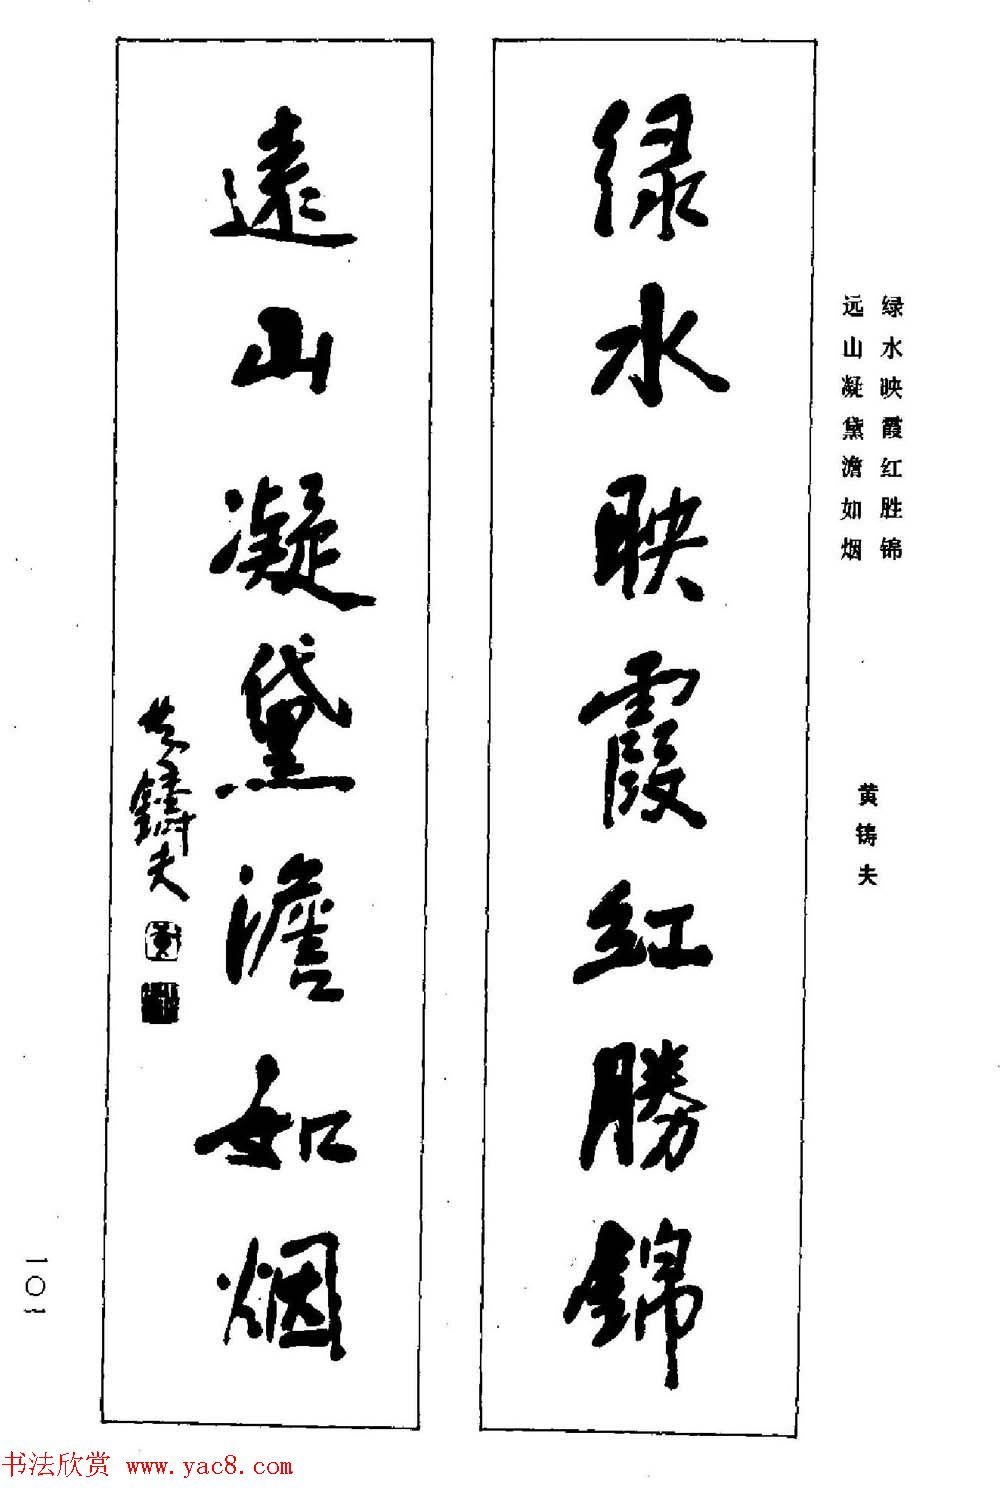 绿水映霞红胜锦
远山凝黛澹如烟
黄铸夫
绿水映霞红勝錦
遠山凝黛澹如烟
黄鑄夫
黃
101
书法欣赏 www.yac8.com